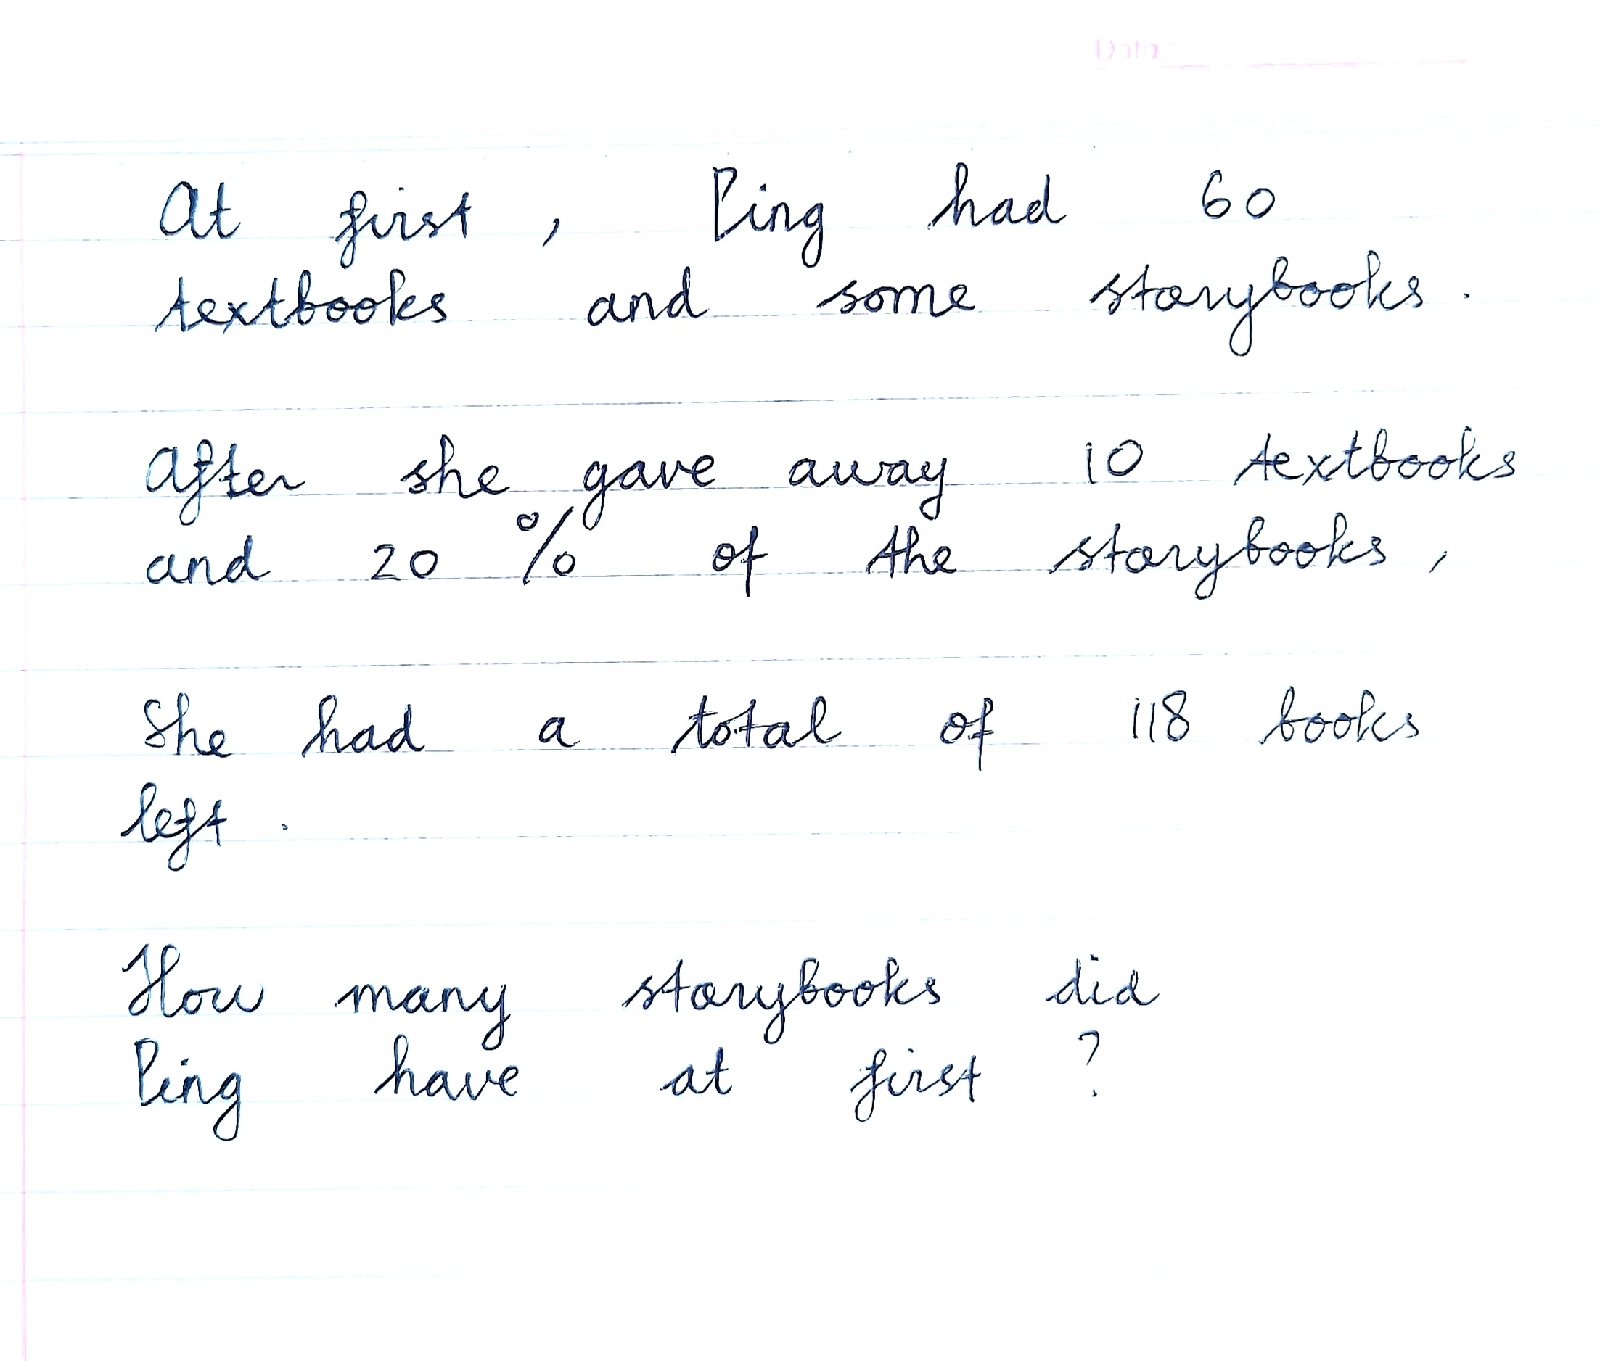 Date
At first, Ping had 60
textbooks and some storybooks.
After she gave away 10 textbooks
and 20 % of the storybooks,
She had a total of 118 books
left.
How many storybooks did
Ping have at first ?